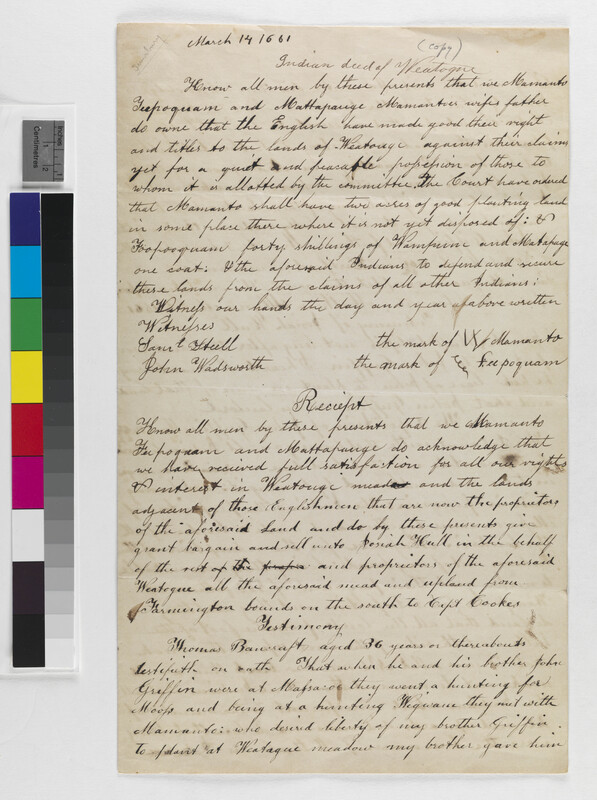 March 14 1661
(copy)
Indian deed of Weatogue
Know all men by these presents that we Mamanto
Feepoquam and Mattapauge Mamantoes wifes father
do owne that the English have made good their right
and titles to the lands of Weatouge against their claims
yet for a quiet and peacable possession of those to
whom it is allotted by the committee, the Court have ordered
that Mamanto shall have two acres of good planting land
in some place there where it is not yet disposed of: &
Foopooquam forty shillings of Wampum and Matapage
one coat: & the aforesaid Indians to defend and secure
these lands from the claims of all other Indians:
Witness our hands the day and year above written
Witnesses
Saml Steell the mark of Mamanto
John Wadsworth the mark of Feepoquam
Reciept
Know all men by these presents that we Mamanto
Feepoquam and Mattapauge do acknowledge that
we have recieved full satisfaction for all our rights
& interest in Weatouge mead and the lands
adjacent of those Englishmen that are now the proprietors
of the aforesaid land and do by these presents give
grant bargain and sell unto Josiah Hull in the behalf
of the rest of the and proprietors of the aforesaid
Weatogue all the aforesaid mead and upland from
Farmington bounds on the south to Capt Cookes
Testimony
Thomas Bancraft aged 36 years or thereabouts
testifith on oath That when he and his brother John
Griffin were at Massaco they went a hunting for
Moos and being at a hunting Wigwane they met with
Mamanto: who desird liberty of my brother Griffin
to plant at Weatague meadow my brother gave him
Centimetres
inches
1
2